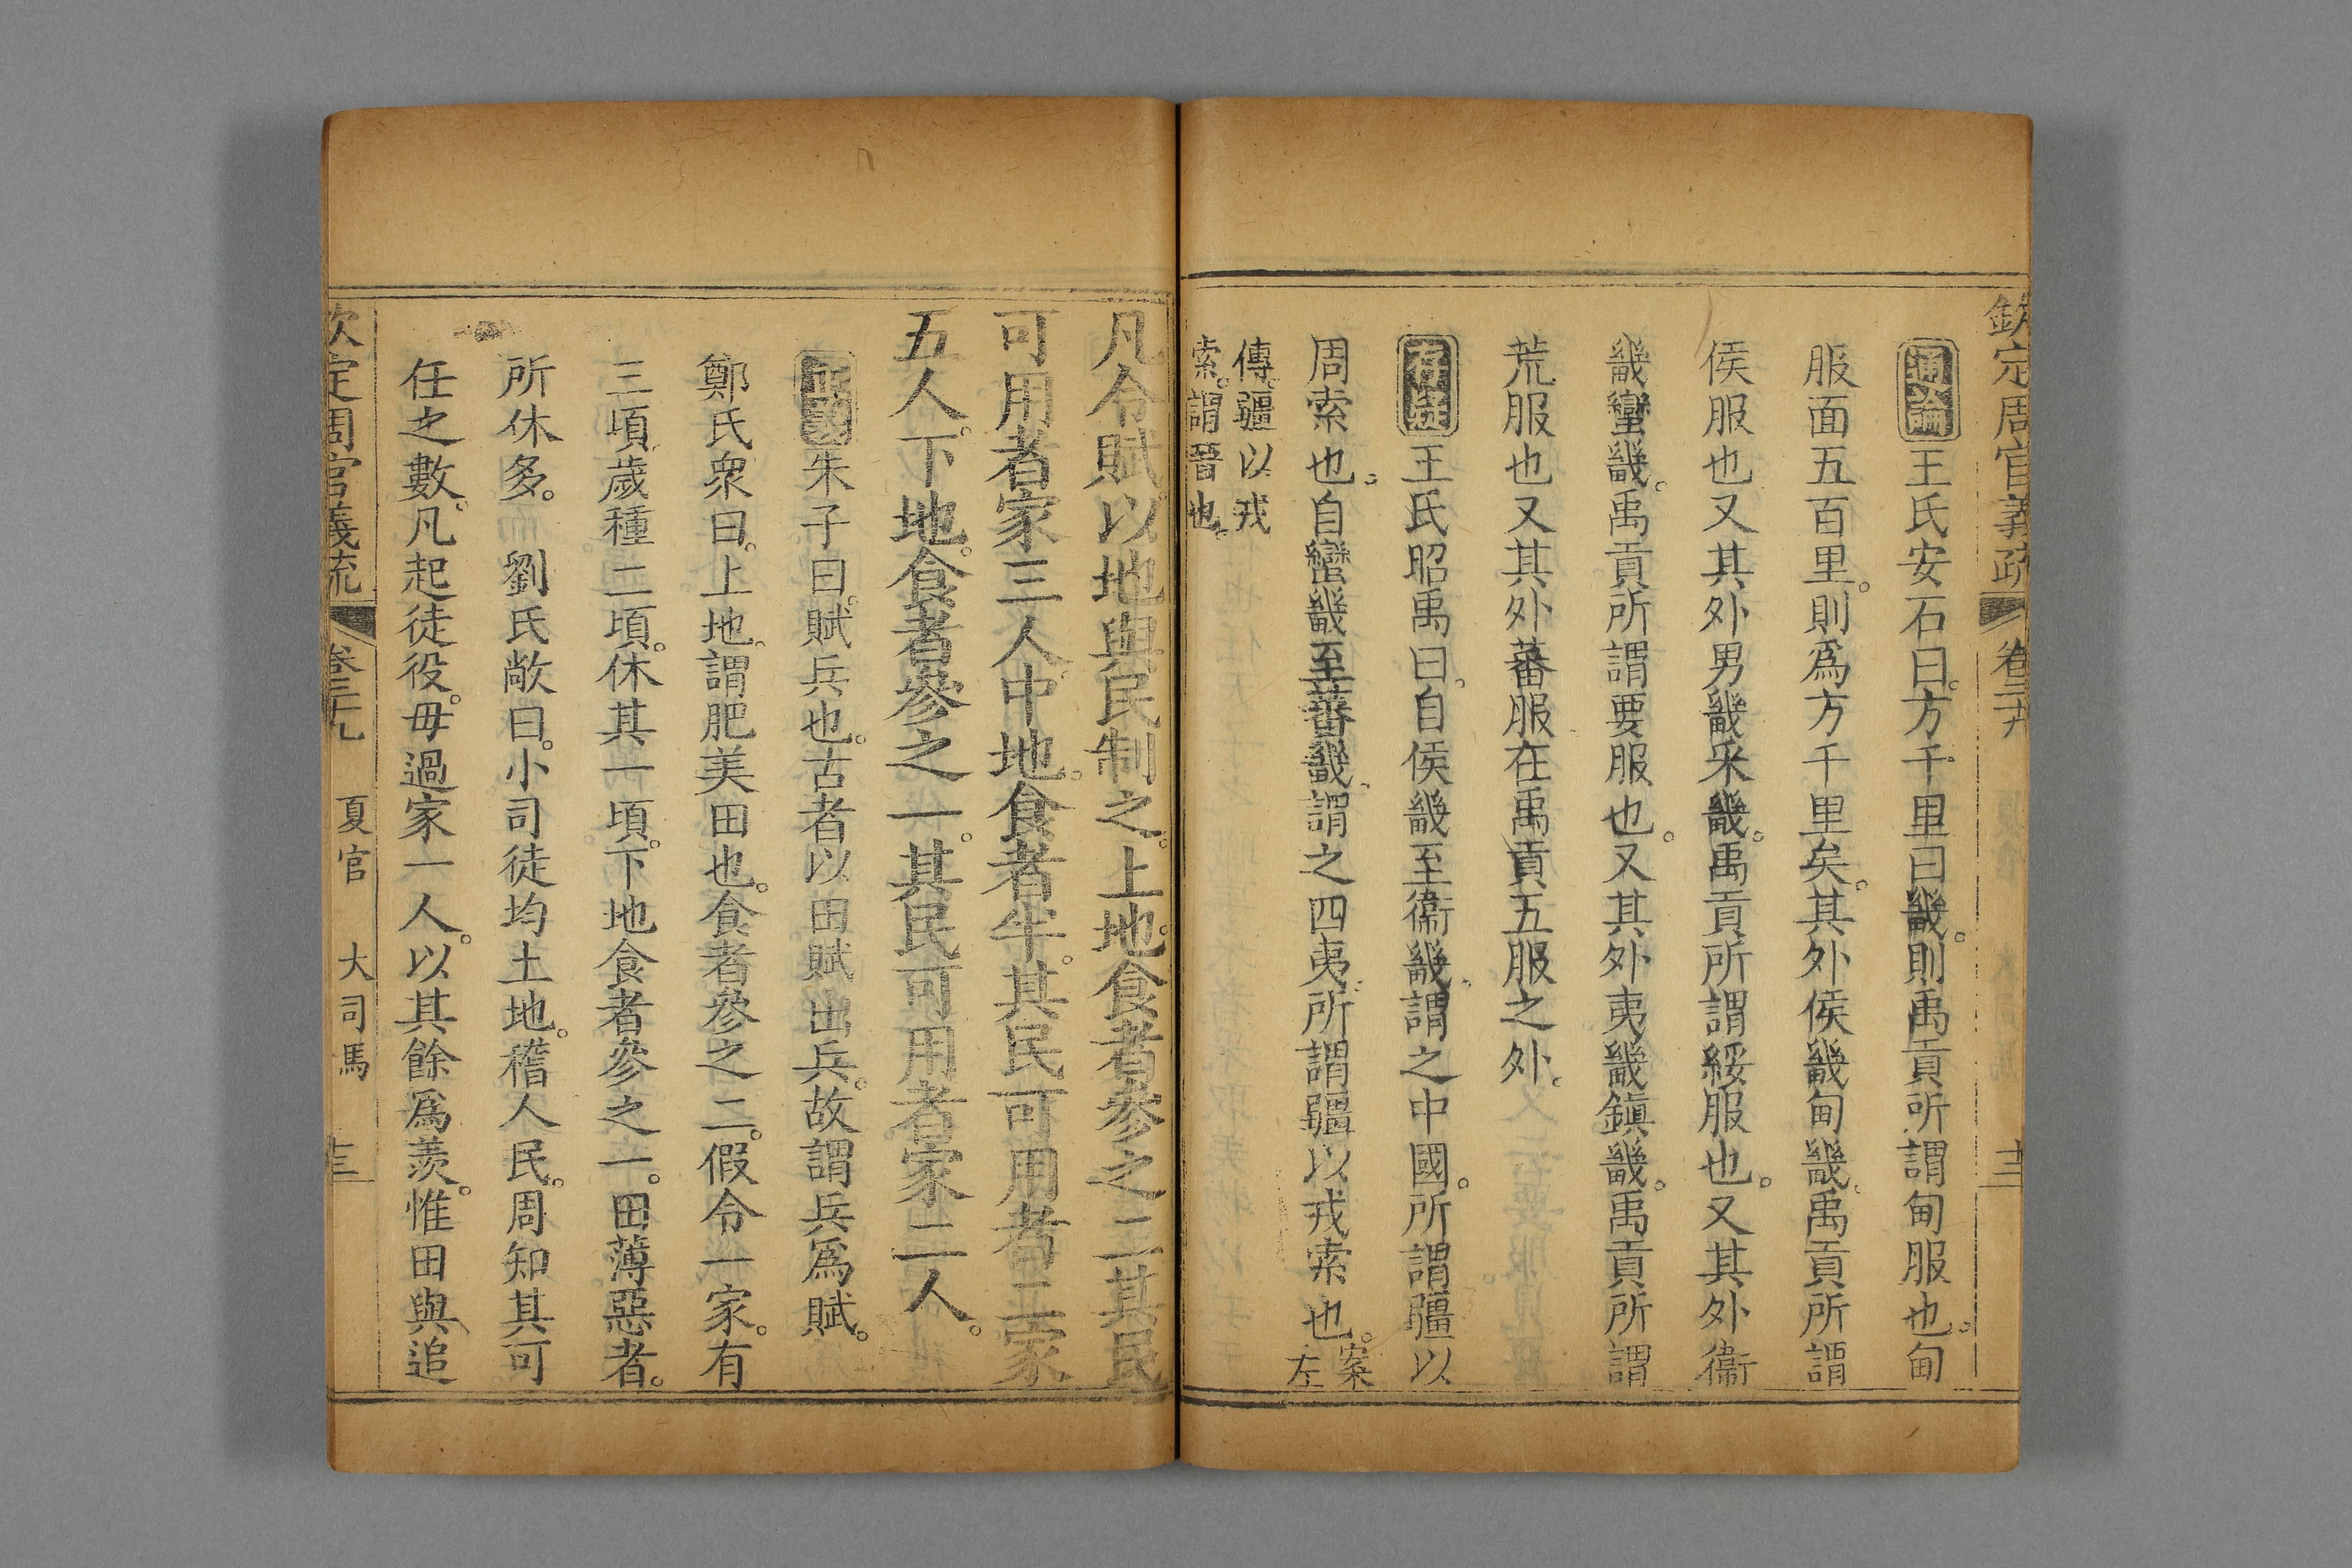 欽定周官義疏 卷二十九 十二
通論王氏安石曰。方千里曰畿。則禹貢所謂甸服也。甸
服面五百里。則爲方千里矣。其外侯畿甸畿。禹貢所謂
侯服也又其外男畿采畿。禹貢所謂綏服也。又其外衞
畿蠻畿。禹貢所謂要服也。又其外夷畿鎭畿。禹貢所謂
荒服也又其外蕃服在禹貢五服之外。
存疑王氏昭禹曰。自侯畿至衞畿。謂之中國。所謂疆以
周索也。自蠻畿至蕃畿。謂之四夷。所謂疆以戎索也。案左
傳。疆以戎
索。謂晉也。
凡令賦。以地與民制之。上地。食者參之二。其民
可用者家三人。中地。食者半。其民可用者二家
五人。下地。食者參之一。其民可用者家二人。
正義朱子曰。賦兵也。古者以田賦出兵。故謂兵爲賦。
鄭氏衆曰。上地。謂肥美田也。食者參之二。假令一家。有
三頃歲種二頃。休其一頃。下地食者參之一。田薄惡者。
所休多。 劉氏敞曰。小司徒均土地。稽人民。周知其可
任之數。凡起徒役。毋過家一人。以其餘爲羨。惟田與追
欽定周官義疏 卷二十九 夏官 大司馬 十三